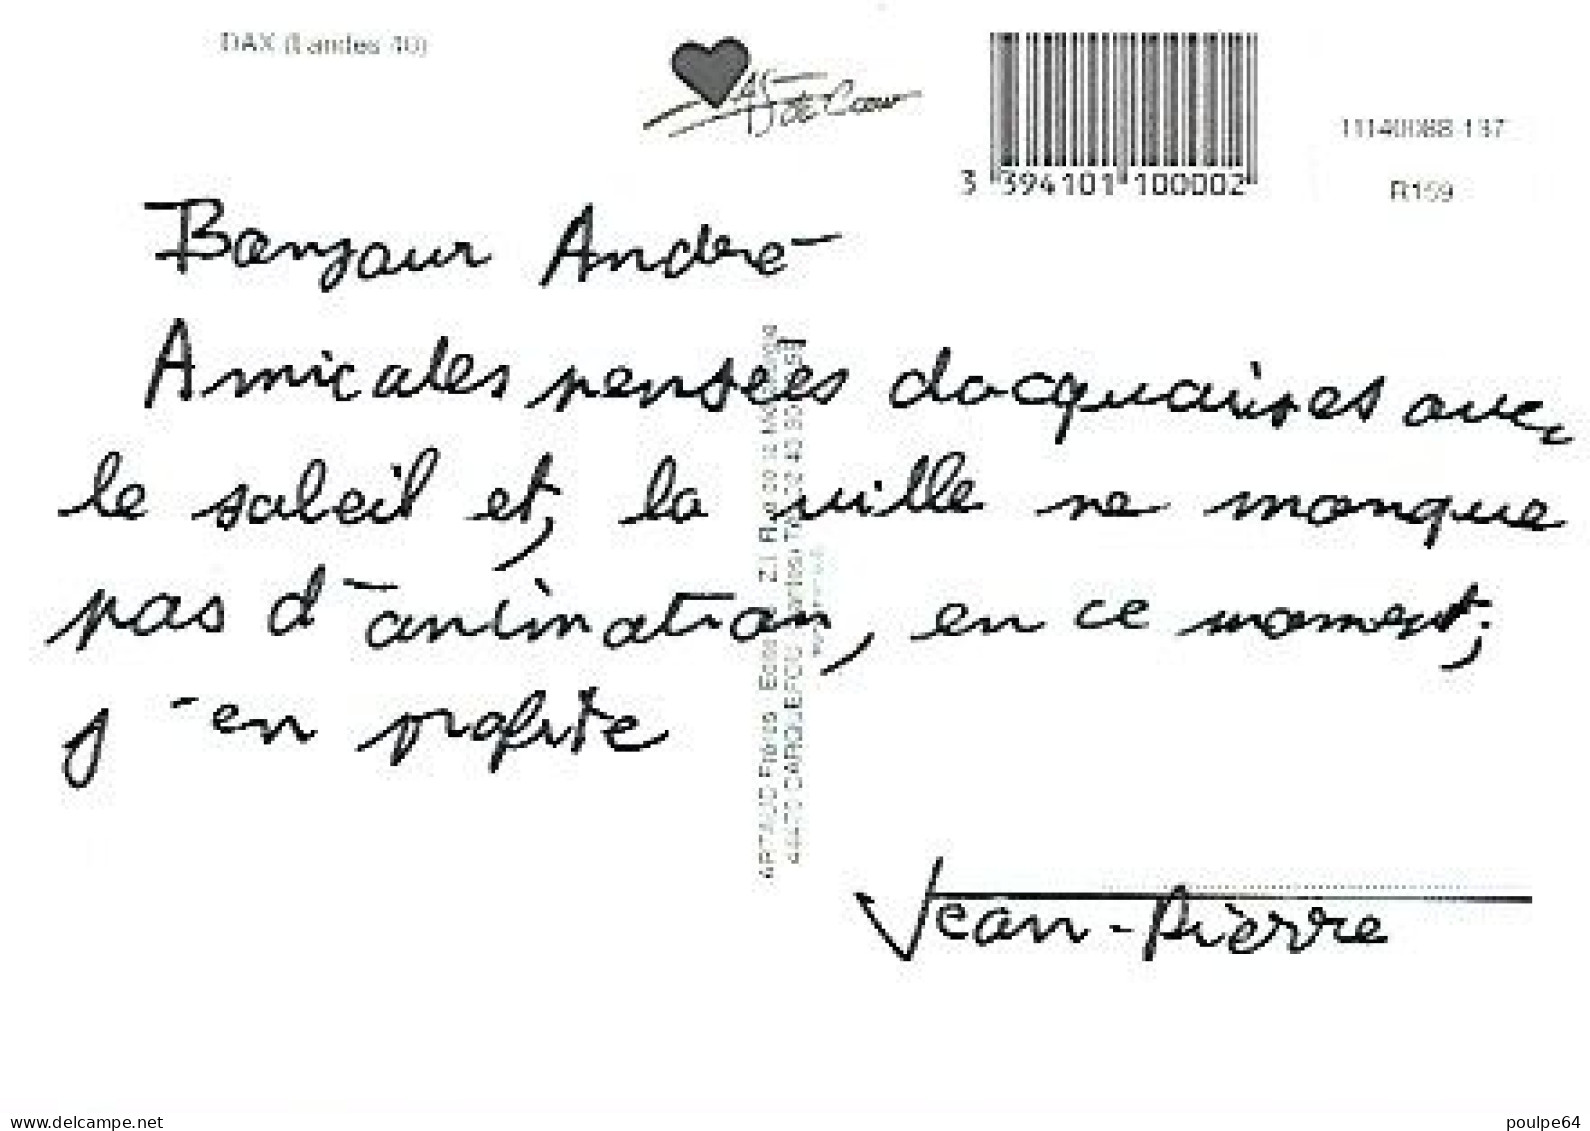 DAX (Landes 40)
As de Cœur
3 394101 100002
11140088 137
R159
Bonjour André
Amicales pensées dacquaises avec
le soleil et, la ville ne manque
pas d'animation, en ce moment;
j'en profite
Jean-Pierre
ARTAUD Frères
44470 CARQUEFOU
www.delcampe.net
poulpe64